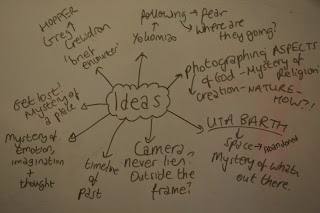 HOPPER
Greg Crewdson
'brief
encounter'
following → fear
Yokomizo
where are
they going?
photographing ASPECTS
of God - Mystery of
religion
creation - NATURE -
HOW?!
Ideas
Get lost!
Mystery of
a place
UTA BARTH
space → abandoned
Mystery of whats
out there.
Mystery of
emotion,
imagination
+
thought
timeline
of
Past
Camera
never lies..
Outside the
frame?